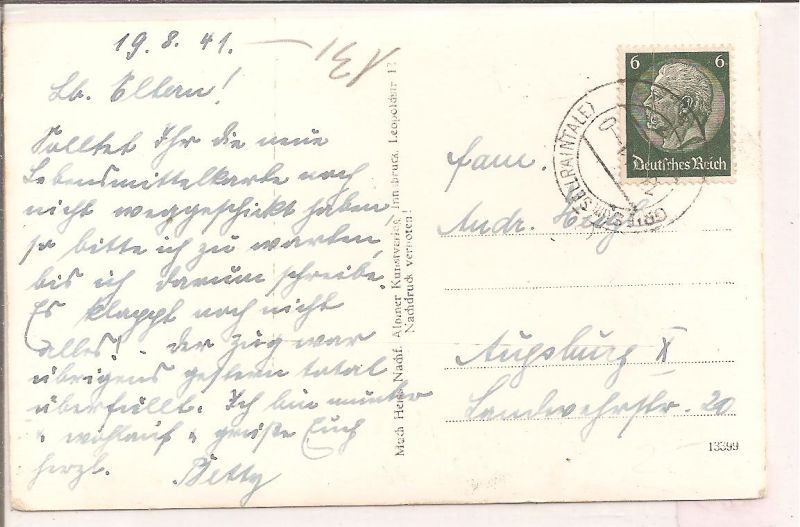 19.8.41.
Lb. Eltern!
Solltet Ihr die neue
Lebensmittelkarte noch
nicht weggeschickt haben
so bitte ich zu warten,
bis ich darum schreibe.
Es klappt noch nicht
alles! - der Zug war
übrigens gestern total
überfüllt. Ich bin munter
u. wohlauf u. grüße Euch
herzl. Betty
Nachf. Alpiner Kunstverlag Innsbruck, Leopoldstr. 12
Nachdruck verboten!
6 6
Deutsches Reich
(SELRAINTALE)
Fam.
Andr.
Augsburg X
Landwehrstr. 20
13399